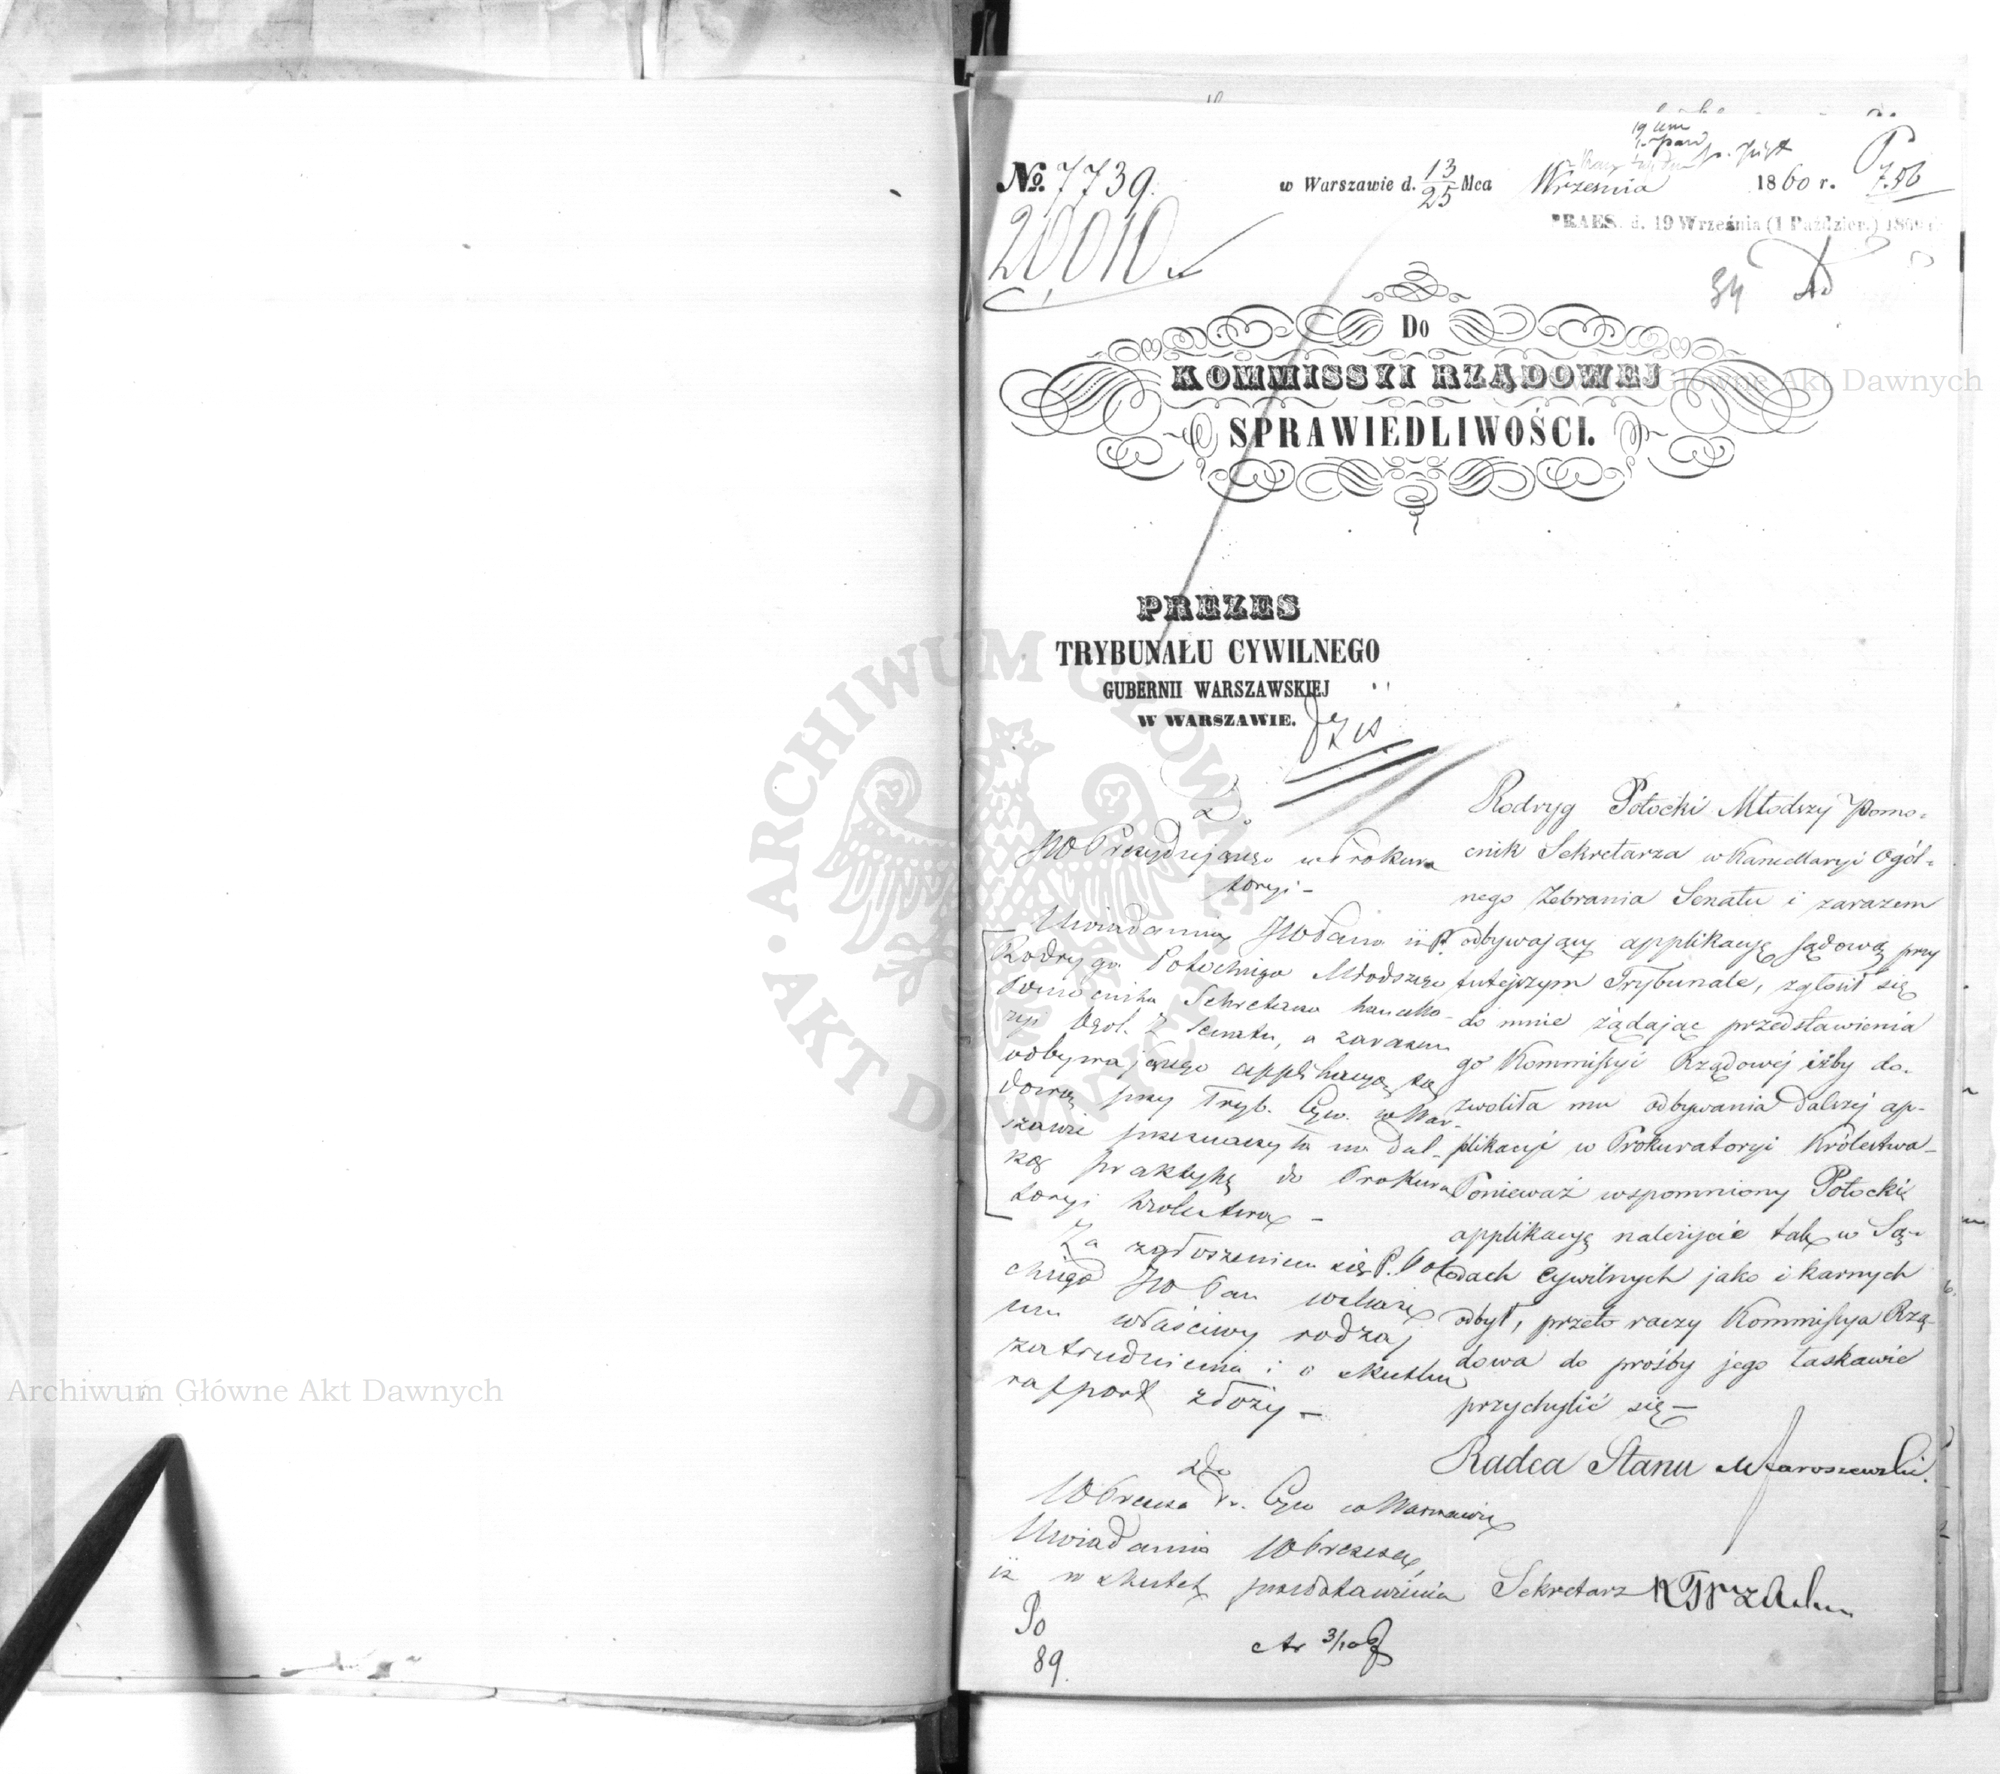 No. 7739.
w Warszawie d. 13/25 Mca Września 1860 r.
20,010
PRAES. d. 19 Września (1 Paździer.) 1860 r.
34
Do
KOMMISSYI RZĄDOWEJ
SPRAWIEDLIWOŚCI.
PREZES
TRYBUNAŁU CYWILNEGO
GUBERNII WARSZAWSKIEJ
W WARSZAWIE.
dziś
Rodryg Potocki Młodszy Pomo-
cnik Sekretarza w Kancellaryi Ogól-
nego Zebrania Senatu i zarazem
odbywający applikacyę sądową przy
tutejszym Trybunale, zgłosił się
do mnie żądając przedstawienia
go Kommissyi Rządowej iżby do-
zwoliła mu odbywania dalszej ap-
plikacyi w Prokuratoryi Królestwa-
Ponieważ wspomniony Potocki
applikacyę należycie tak w Są-
dach cywilnych jako i karnych
odbył, przeto raczy Kommissya Rzą-
dowa do prośby jego łaskawie
przychylić się-
Radca Stanu M Jaroszewski.
Sekretarz
Do
JW Prezydującego w Prokura
toryi-
Uwiadamia JW Pana iż P.
Rodryga Potockiego Młodszego
Pomocnika Sekretarza Kancella-
ryi Ogól. Z. Senatu, a zarazem
odbywającego applikacyę są
dową przy Tryb. Cyw. w War-
szawie przeznaczyła na dal-
szą praktykę do Prokura
toryi Królestwa-
Za zgłoszeniem się P. Poto
ckiego JW Pan wskaże
mu właściwy rodzaj
zatrudnienia i o skutku
rapport złoży-
do
W Prezesa Tr. Cyw w Warszawie
Uwiadamia W Prezesa,
iż w skutek przedstawienia
Po
89.
3/10
Archiwum Główne Akt Dawnych
Archiwum Główne Akt Dawnych
ARCHIWUM GŁÓWNE AKT DAWNYCH